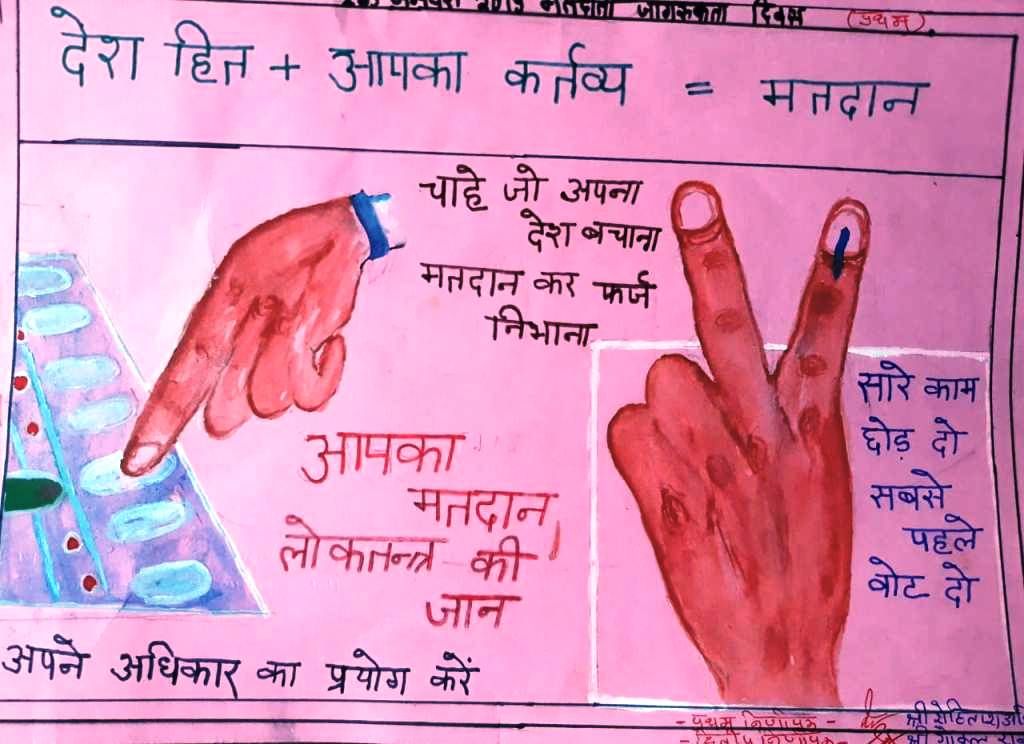 जागरूकता दिवस (प्रथम)
देश हित + आपका कर्तव्य = मतदान
चाहे जो अपना
देश बचाना
मतदान कर फर्ज
निभाना
आपका
मतदान
लोकतन्त्र की
जान
सारे काम
छोड़ दो
सबसे
पहले
वोट दो
अपने अधिकार का प्रयोग करें
- प्रथम निर्णायक -
श्री
- द्वितीय निर्णायक
श्री